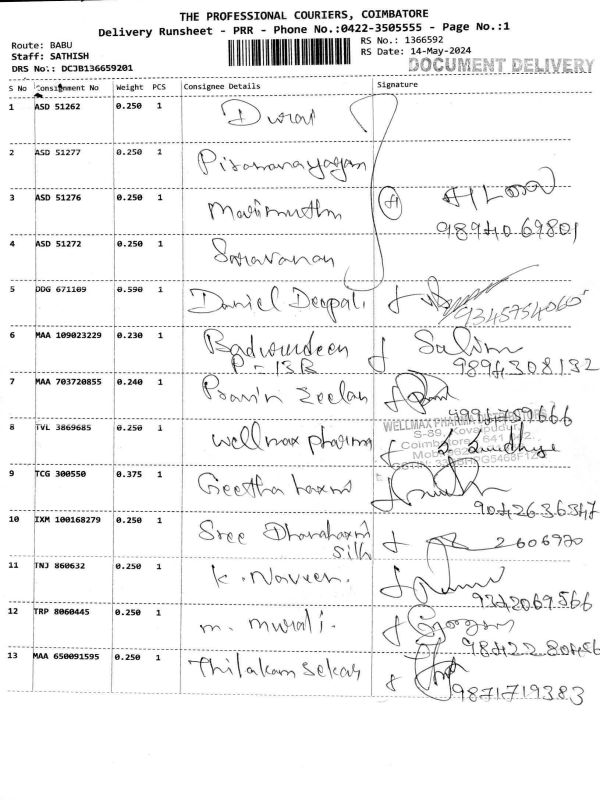 THE PROFESSIONAL COURIERS, COIMBATORE
Delivery Runsheet - PRR - Phone No.:0422-3505555 - Page No.:1
Route: BABU
RS No.: 1366592
Staff: SATHISH
RS Date: 14-May-2024
DRS No.: DCJB136659201
DOCUMENT DELIVERY
S No Consignment No Weight PCS Consignee Details Signature
1 ASD 51262 0.250 1 Durai
2 ASD 51277 0.250 1
3 ASD 51276 0.250 1 Marimuthu
9894069801
4 ASD 51272 0.250 1 Saravanan
5 DDG 671109 0.590 1 Daniel Deepali
9345754060
6 MAA 109023229 0.230 1 Badurudeen Salim
P-13B 9894308132
7 MAA 703720855 0.240 1 Pravin Zeelan
8 TVL 3869685 0.250 1 wellmax pharma
WELLMAX PHARMA
S-89, Kovaipudur
9 TCG 300550 0.375 1 Geetha laxmi
9042636347
10 IXM 100168279 0.250 1 Sree Dhanalaxmi 2606970
Silk
11 TNJ 860632 0.250 1 K. Naveen.
9342069566
12 TRP 8060445 0.250 1 m. murali.
9842280456
13 MAA 650091595 0.250 1 Thilakam Sekar
9871719383